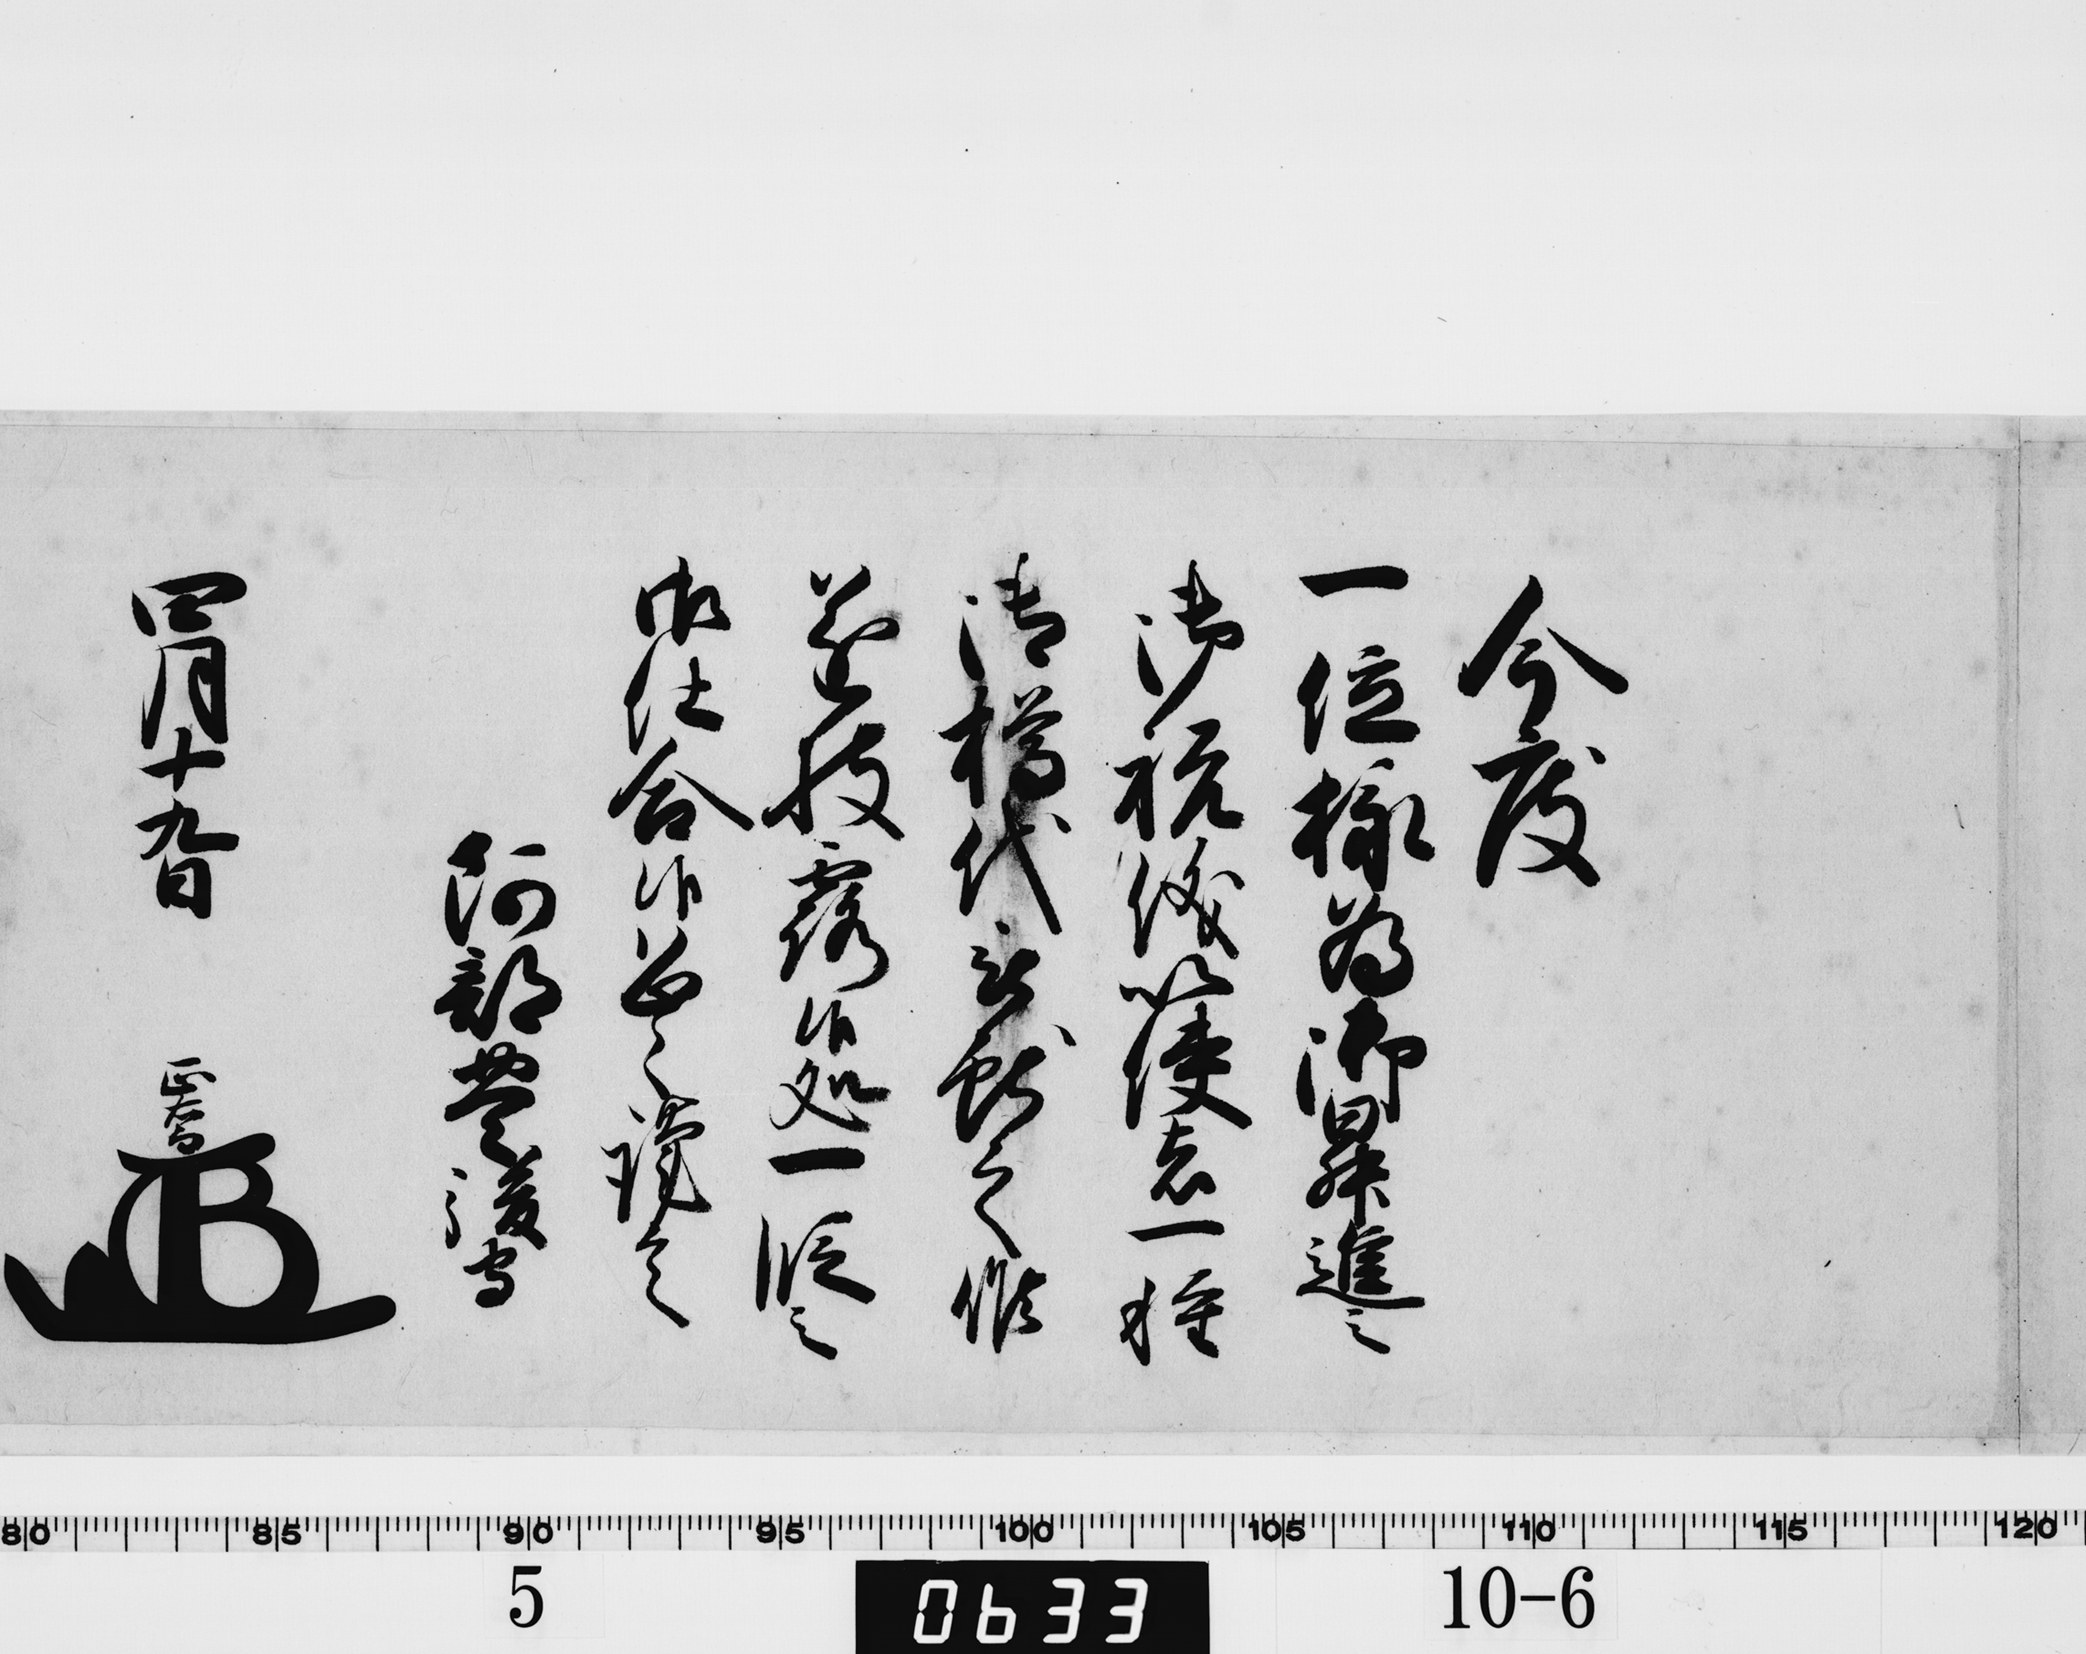 今度
一位様為御昇進之
御祝儀以使者一種
御樽代被献之候
遂披露候処一段之
御仕合候恐々謹言
阿部豊後守
四月十九日 正喬
80 85 90 95 100 105 110 115 120
5 0633 10-6